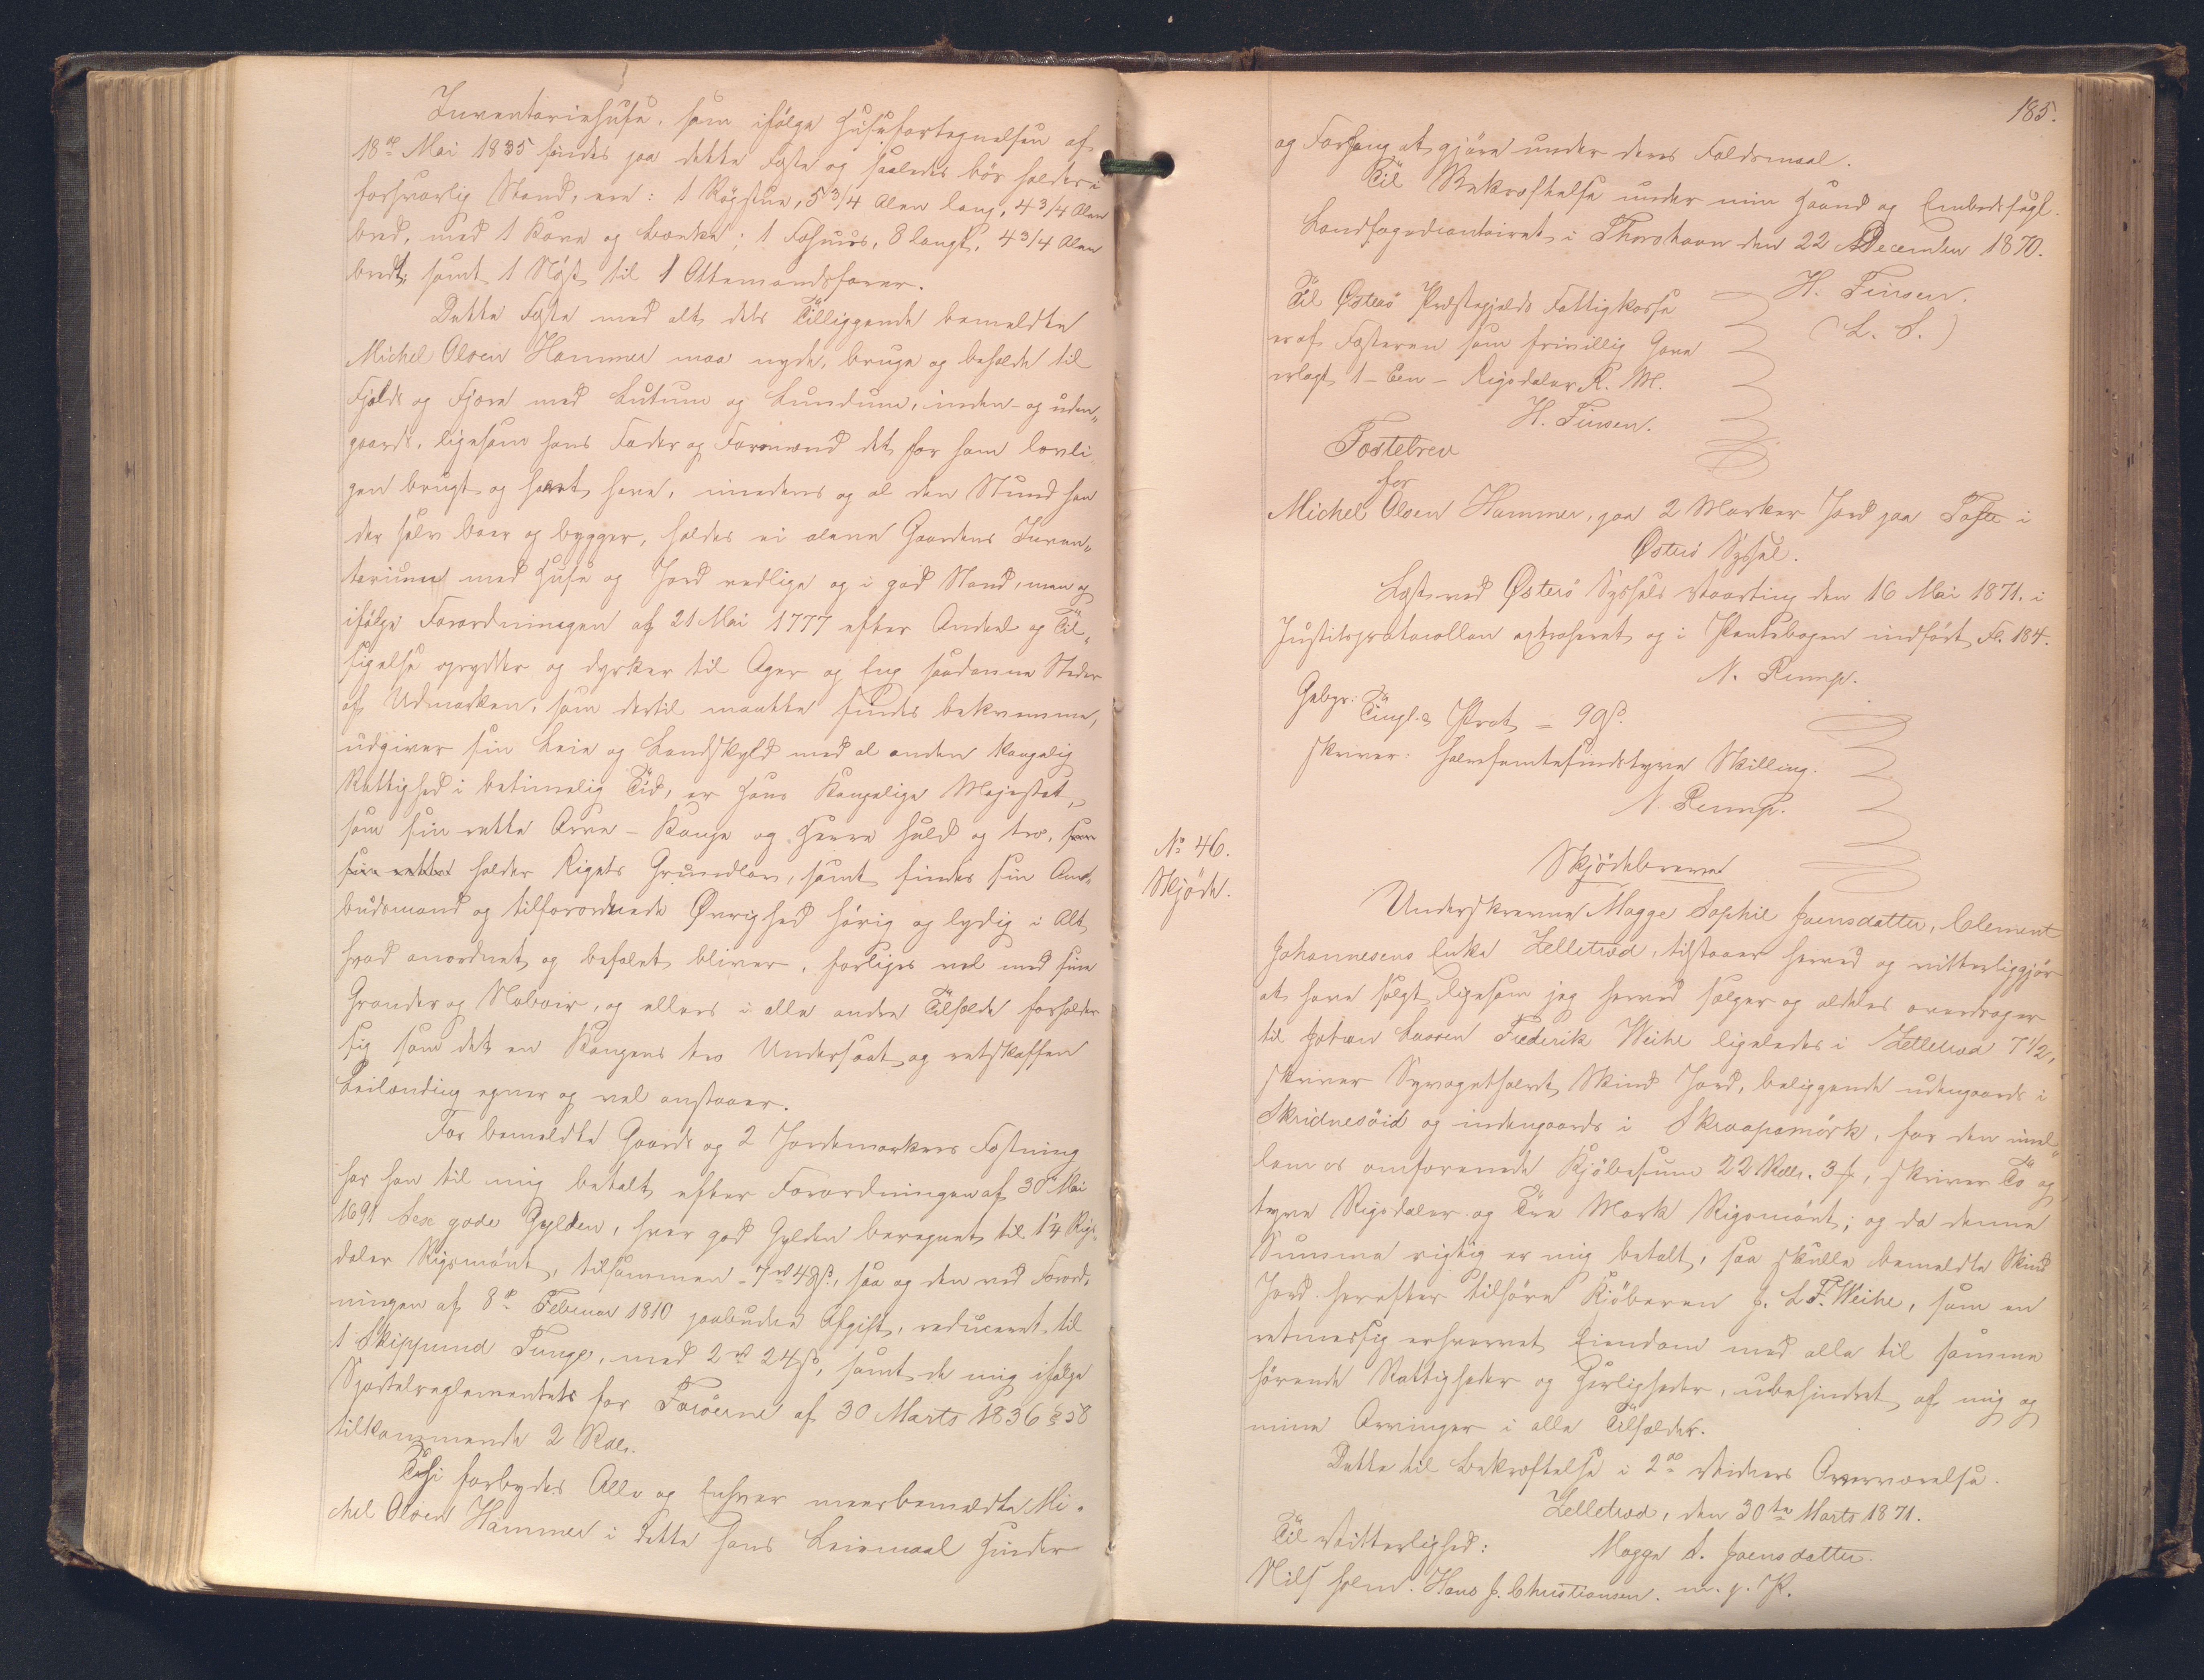 Inventariehuse, som ifölge Huusfortegnelsen af
18de Mai 1835 findes paa dette Fæste og saaledes bör holdes i
forsvarlig Stand, ere: 1 Rögstue, 5 3/4 Alen lang, 4 3/4 Alen
bred, med 1 Kove og Bænke; 1 Fæhuus, 8 langt, 4 3/4 Alen
bredt, samt 1 Nöst til 1 Ottemandsfarer.
Dette Fæste med alt dets Tilliggende bemeldte
Michel Olsen Hammer maa nyde, bruge og beholde til
Fjelds og Fjære med Lutum og Lundum, inden- og uden-
gaards, ligesom hans Fader og Formænd det for ham lovli-
gen brugt og havt have, imedens og al den Stund han
der selv boer og bygger, holder ei alene Gaardens Inven-
tarium med Huse og Jord vedlige og i god Stand, men og
ifölge Forordningen af 21 Mai 1777 efter Andeel og Til-
sigelse oprydder og dyrker til Ager og Eng saadanne Steder
af Udmarken, som dertil maatte findes bekvemme,
udgiver sin Leie og Landskyld med al anden kongelig
Rettighed i betimelig Tid, er Hans Kongelige Majestæt,
som sin rette Arve-Konge og Herre huld og tro, som
sin rette holder Rigets Grundlov, samt findes sin Om-
budsmand og tilforordnede Øvrighed hörig og lydig i Alt
hvad anordnet og befalet bliver, forliges vel med sine
Grander og Naboer, og ellers i alle andre Tilfælde forholder
sig som det en Kongens tro Undersaat og retskaffen
Leilænding egner og vel anstaaer.
For bemeldte Gaards og 2 Jordemarkers Fæstning
har han til mig betalt efter Forordningen af 30 Mai
1691 Sex gode Gylden, hver god Gylden beregnet til 1 1/4 Rigs-
daler Rigsmönt, tilsammen 7 rd 48 ß, saa og den ved Forord-
ningen af 8de Februar 1810 paabudne Afgift, reduceret til
1 Skippund Tunge, med 2 rd 24 ß, samt de mig ifölge
Sportelreglementet for Færöerne af 30 Marts 1836 § 58
tilkommende 2 Rdlr.
Thi forbydes Alle og Enhver meerbemeldte Mi-
chel Olsen Hammer i dette hans Leiemaal Hinder
185.
og Forfang at gjöre under deres Faldsmaal.
Til Bekræftelse under min Haand og Embedssegl.
Landfogedcontoiret i Thorshavn den 22 December 1870.
H. Finsen.
(L. S.)
Til Østerö Præstegjælds Fattigkasse
er af Fæsteren som frivillig Gave
erlagt 1 - Een - Rigsdaler R. M.
H. Finsen.
Fæstebrev
for
Michel Olsen Hammer, paa 2 Marker Jord paa Tofte i
Østerö Syssel.
Læst ved Østerö Syssels Vaarting den 16 Mai 1871. i
Justitsprotocollen extraheret og i Pantebogen indfört Fl. 184.
N. Rump.
Gebyr: Tingl. & Prot = 90 ß.
skriver: halvfemtesindstyve Skilling.
N. Rump.
No 46.
Skjöde.
Skjödebrevet
Underskrevne Magge Sophie Joensdatter, Clement
Johannesens Enke Zelletræd, tilstaaer herved og vitterliggjör
at have solgt ligesom jeg herved sælger og aldeles overdrager
til Johan Lassen Frederik Weihe ligeledes i Zelletræd 7 1/2,
skriver Syvogethalvt Skind Jord, beliggende udengaards i
Skridnesöid og indengaards i Skraapamörk, for den imel-
lem os omforenede Kjöbesum 22 Rdlr. 3 ₰, skriver To og
tyve Rigsdaler og Tre Mark Rigsmönt; og da denne
Summa rigtig er mig betalt, saa skulle bemeldte Skind
Jord herefter tilhöre Kjöberen J. L F. Weihe, som en
retmessig erhvervet Eiendom med alle til samme
hörende Rettigheder og Herligheder, ubehindret af mig og
mine Arvinger i alle Tilfælder.
Dette til Bekræftelse i 2de Vidners Overværelse.
Zelletræd, den 30te Marts 1871.
Til Vitterlighed: Magge S. Joensdatter.
Nils Holm. Hans J. Christiansen. m. p. P.